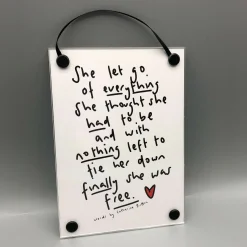 She let go
of everything
she thought she
had to be
and with
nothing left to
tie her down
finally she was
free.
words by